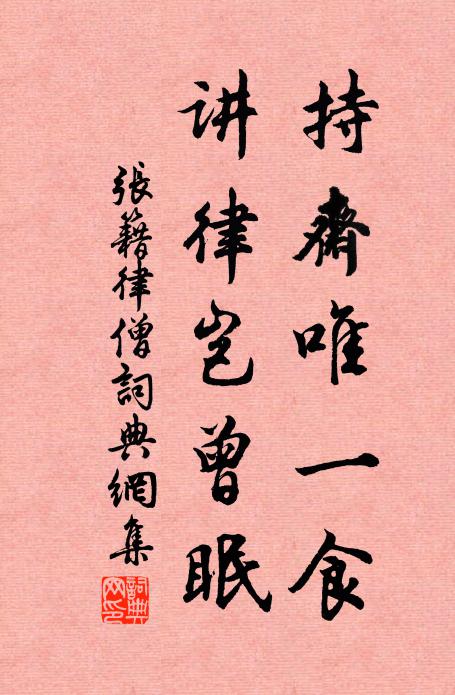 持齋唯一食
讲律岂曾眠
張籍律僧詞典網集
詞典网印